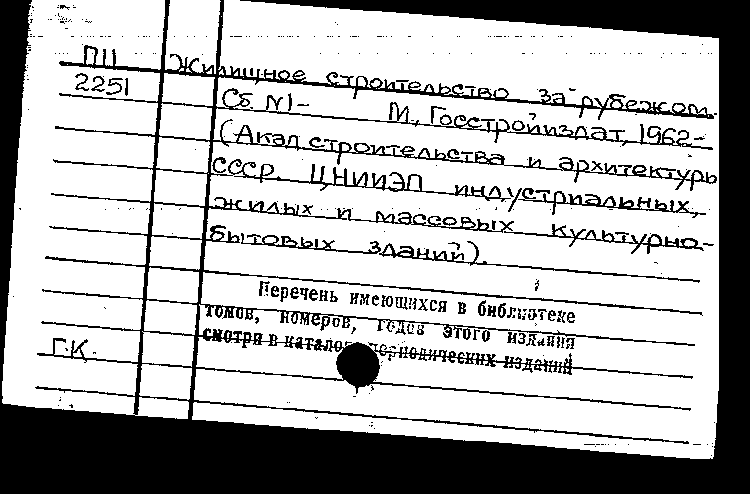 ПII Жилищное строительство за рубежом.
2251 Сб. №1- М., Госстройиздат, 1962-
(Акад строительства и архитектуры
СССР. ЦНИИЭП индустриальных,
жилых и массовых культурно-
бытовых зданий).
Перечень имеющихся в библиотеке
томов, номеров, годов этого издания
смотри в каталоге периодических изданий
Г.К.